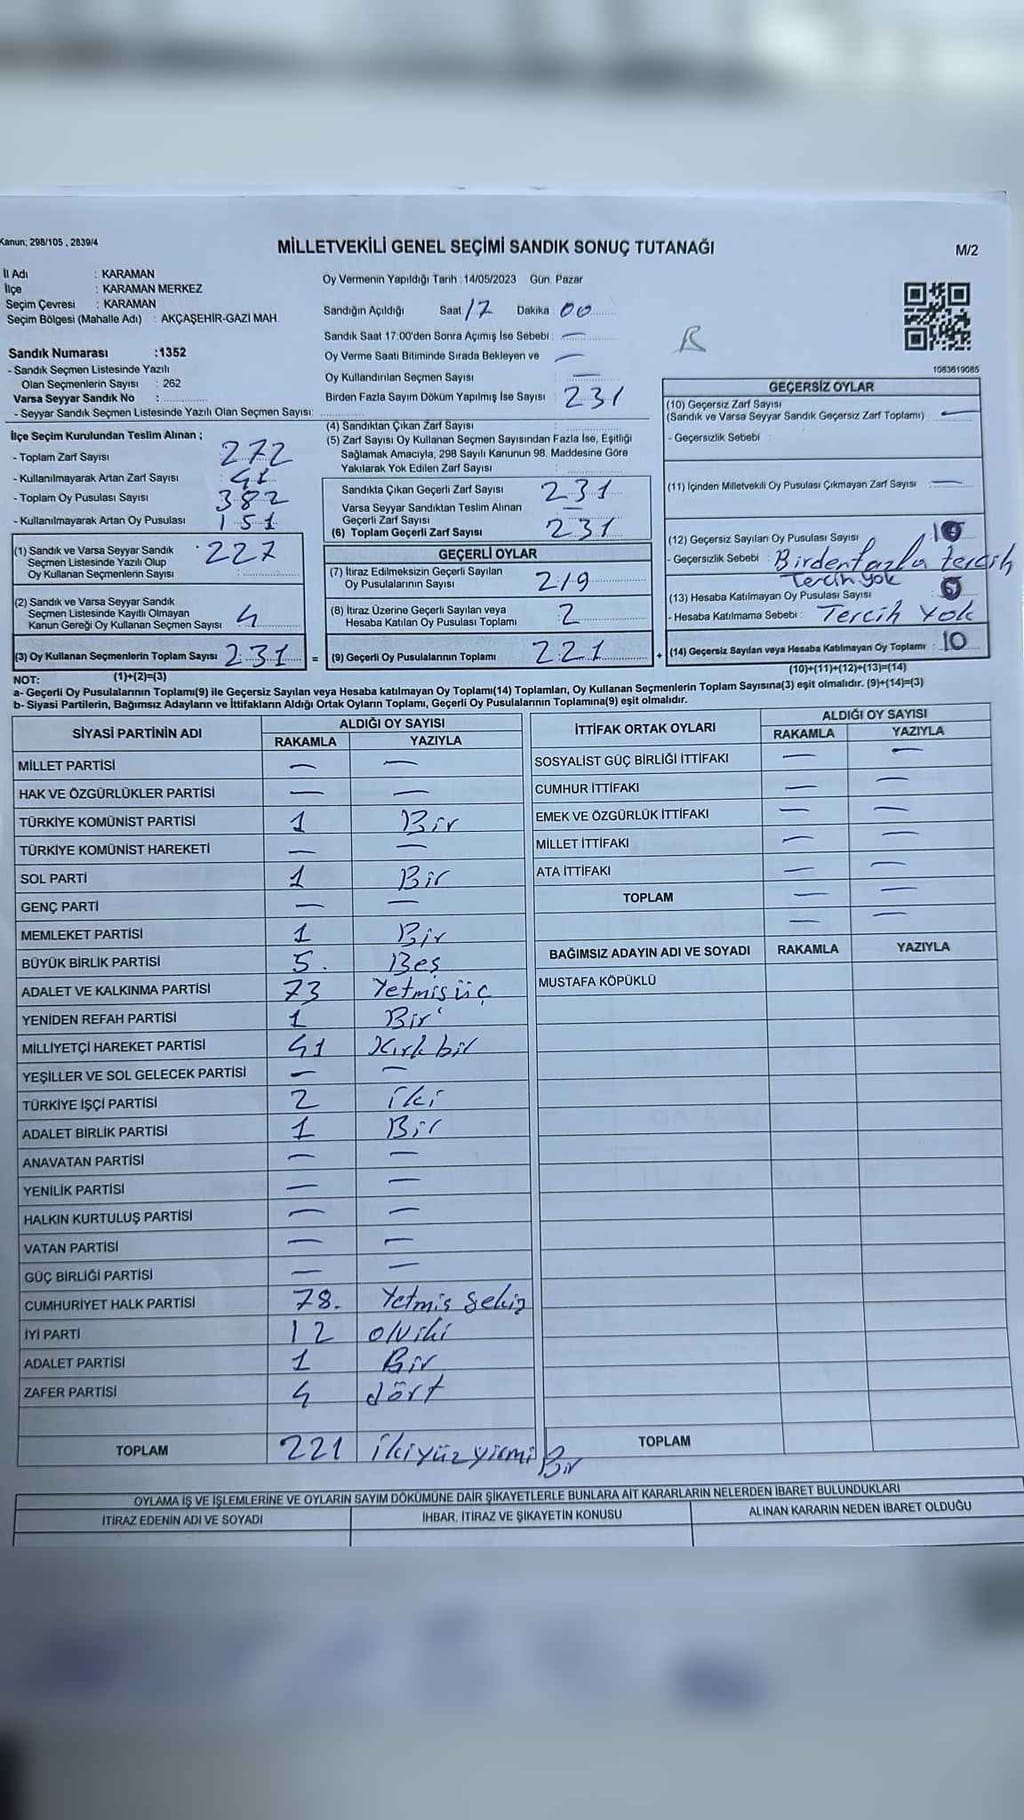 Kanun; 298/105 , 2839/4
MİLLETVEKİLİ GENEL SEÇİMİ SANDIK SONUÇ TUTANAĞI
M/2
İl Adı : KARAMAN
İlçe : KARAMAN MERKEZ
Seçim Çevresi : KARAMAN
Seçim Bölgesi (Mahalle Adı) : AKÇAŞEHİR-GAZİ MAH.
Sandık Numarası :1352
- Sandık Seçmen Listesinde Yazılı
Olan Seçmenlerin Sayısı : 262
Varsa Seyyar Sandık No :
- Seyyar Sandık Seçmen Listesinde Yazılı Olan Seçmen Sayısı:
Oy Vermenin Yapıldığı Tarih :14/05/2023 Gün: Pazar
Sandığın Açıldığı Saat 17 Dakika 00
Sandık Saat 17:00'den Sonra Açımış İse Sebebi : —
Oy Verme Saati Bitiminde Sırada Bekleyen ve —
Oy Kullandırılan Seçmen Sayısı —
Birden Fazla Sayım Döküm Yapılmış İse Sayısı 231
1083619085
İlçe Seçim Kurulundan Teslim Alınan ;
- Toplam Zarf Sayısı 272
- Kullanılmayarak Artan Zarf Sayısı 41
- Toplam Oy Pusulası Sayısı 382
- Kullanılmayarak Artan Oy Pusulası 151
(1) Sandık ve Varsa Seyyar Sandık 227
Seçmen Listesinde Yazılı Olup
Oy Kullanan Seçmenlerin Sayısı
(2) Sandık ve Varsa Seyyar Sandık
Seçmen Listesinde Kayıtlı Olmayan
Kanun Gereği Oy Kullanan Seçmen Sayısı 4
(3) Oy Kullanan Seçmenlerin Toplam Sayısı 231 =
(1)+(2)=(3)
(4) Sandıktan Çıkan Zarf Sayısı
(5) Zarf Sayısı Oy Kullanan Seçmen Sayısından Fazla İse, Eşitliği
Sağlamak Amacıyla, 298 Sayılı Kanunun 98. Maddesine Göre
Yakılarak Yok Edilen Zarf Sayısı
Sandıkta Çıkan Geçerli Zarf Sayısı 231
Varsa Seyyar Sandıktan Teslim Alınan
Geçerli Zarf Sayısı —
(6) Toplam Geçerli Zarf Sayısı 231
GEÇERLİ OYLAR
(7) İtiraz Edilmeksizin Geçerli Sayılan
Oy Pusulalarının Sayısı 219
(8) İtiraz Üzerine Geçerli Sayılan veya
Hesaba Katılan Oy Pusulası Toplamı 2
(9) Geçerli Oy Pusulalarının Toplamı 221 +
GEÇERSİZ OYLAR
(10) Geçersiz Zarf Sayısı
(Sandık ve Varsa Seyyar Sandık Geçersiz Zarf Toplamı) —
- Geçersizlik Sebebi :
(11) İçinden Milletvekili Oy Pusulası Çıkmayan Zarf Sayısı —
(12) Geçersiz Sayılan Oy Pusulası Sayısı
- Geçersizlik Sebebi : Birden fazla tercih
Tercih yok
(13) Hesaba Katılmayan Oy Pusulası Sayısı :
- Hesaba Katılmama Sebebi : Tercih yok
(14) Geçersiz Sayılan veya Hesaba Katılmayan Oy Toplamı : 10
(10)+(11)+(12)+(13)=(14)
NOT:
a- Geçerli Oy Pusulalarının Toplamı(9) ile Geçersiz Sayılan veya Hesaba katılmayan Oy Toplamı(14) Toplamları, Oy Kullanan Seçmenlerin Toplam Sayısına(3) eşit olmalıdır. (9)+(14)=(3)
b- Siyasi Partilerin, Bağımsız Adayların ve İttifakların Aldığı Ortak Oyların Toplamı, Geçerli Oy Pusulalarının Toplamına(9) eşit olmalıdır.
SİYASİ PARTİNİN ADI ALDIĞI OY SAYISI
RAKAMLA YAZIYLA
MİLLET PARTİSİ — —
HAK VE ÖZGÜRLÜKLER PARTİSİ — —
TÜRKİYE KOMÜNİST PARTİSİ 1 Bir
TÜRKİYE KOMÜNİST HAREKETİ — —
SOL PARTİ 1 Bir
GENÇ PARTİ — —
MEMLEKET PARTİSİ 1 Bir
BÜYÜK BİRLİK PARTİSİ 5. Beş
ADALET VE KALKINMA PARTİSİ 73 Yetmişüç
YENİDEN REFAH PARTİSİ 1 Bir
MİLLİYETÇİ HAREKET PARTİSİ 41 Kırk bir
YEŞİLLER VE SOL GELECEK PARTİSİ — —
TÜRKİYE İŞÇİ PARTİSİ 2 iki
ADALET BİRLİK PARTİSİ 1 Bir
ANAVATAN PARTİSİ — —
YENİLİK PARTİSİ — —
HALKIN KURTULUŞ PARTİSİ — —
VATAN PARTİSİ — —
GÜÇ BİRLİĞİ PARTİSİ — —
CUMHURİYET HALK PARTİSİ 78. Yetmiş Sekiz
İYİ PARTİ 12 ONiki
ADALET PARTİSİ 1 Bir
ZAFER PARTİSİ 4 dört
TOPLAM 221 ikiyüzyirmi Bir
İTTİFAK ORTAK OYLARI ALDIĞI OY SAYISI
RAKAMLA YAZIYLA
SOSYALİST GÜÇ BİRLİĞİ İTTİFAKI — —
CUMHUR İTTİFAKI — —
EMEK VE ÖZGÜRLÜK İTTİFAKI — —
MİLLET İTTİFAKI — —
ATA İTTİFAKI — —
TOPLAM — —
— —
BAĞIMSIZ ADAYIN ADI VE SOYADI RAKAMLA YAZIYLA
MUSTAFA KÖPÜKLÜ
TOPLAM
OYLAMA İŞ VE İŞLEMLERİNE VE OYLARIN SAYIM DÖKÜMÜNE DAİR ŞİKAYETLERLE BUNLARA AİT KARARLARIN NELERDEN İBARET BULUNDUKLARI
İTİRAZ EDENİN ADI VE SOYADI İHBAR, İTİRAZ VE ŞİKAYETİN KONUSU ALINAN KARARIN NEDEN İBARET OLDUĞU